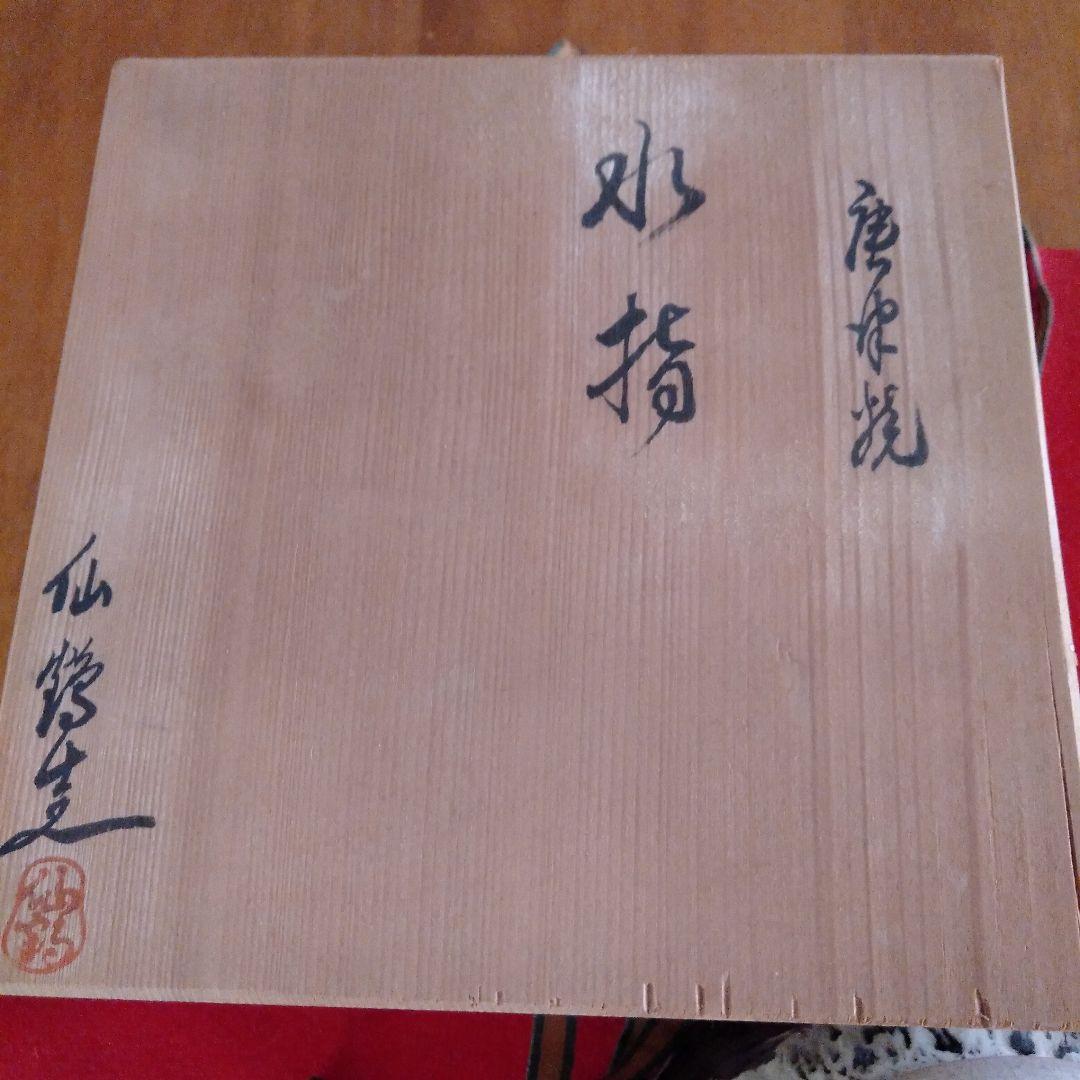 唐津焼
水指
仙鶴造
仙鶴